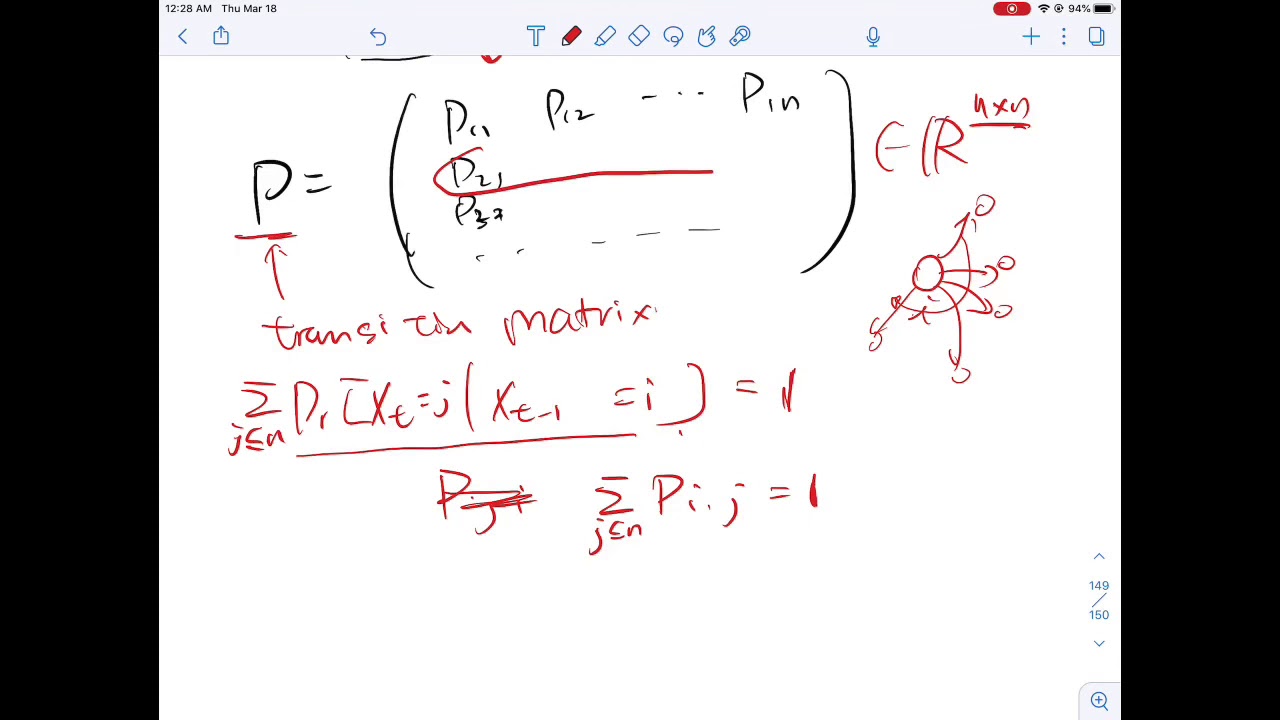 12:28 AM Thu Mar 18
94%
T
P11 P12 - · · · P1n
P = P21 ∈ ℝ^{n×n}
P3*
· · · - - -
transition matrix
∑_{j≤n} Pr[X_t = j | X_{t-1} = i] = 1
∑_{j≤n} P_{i,j} = 1
149
/
150